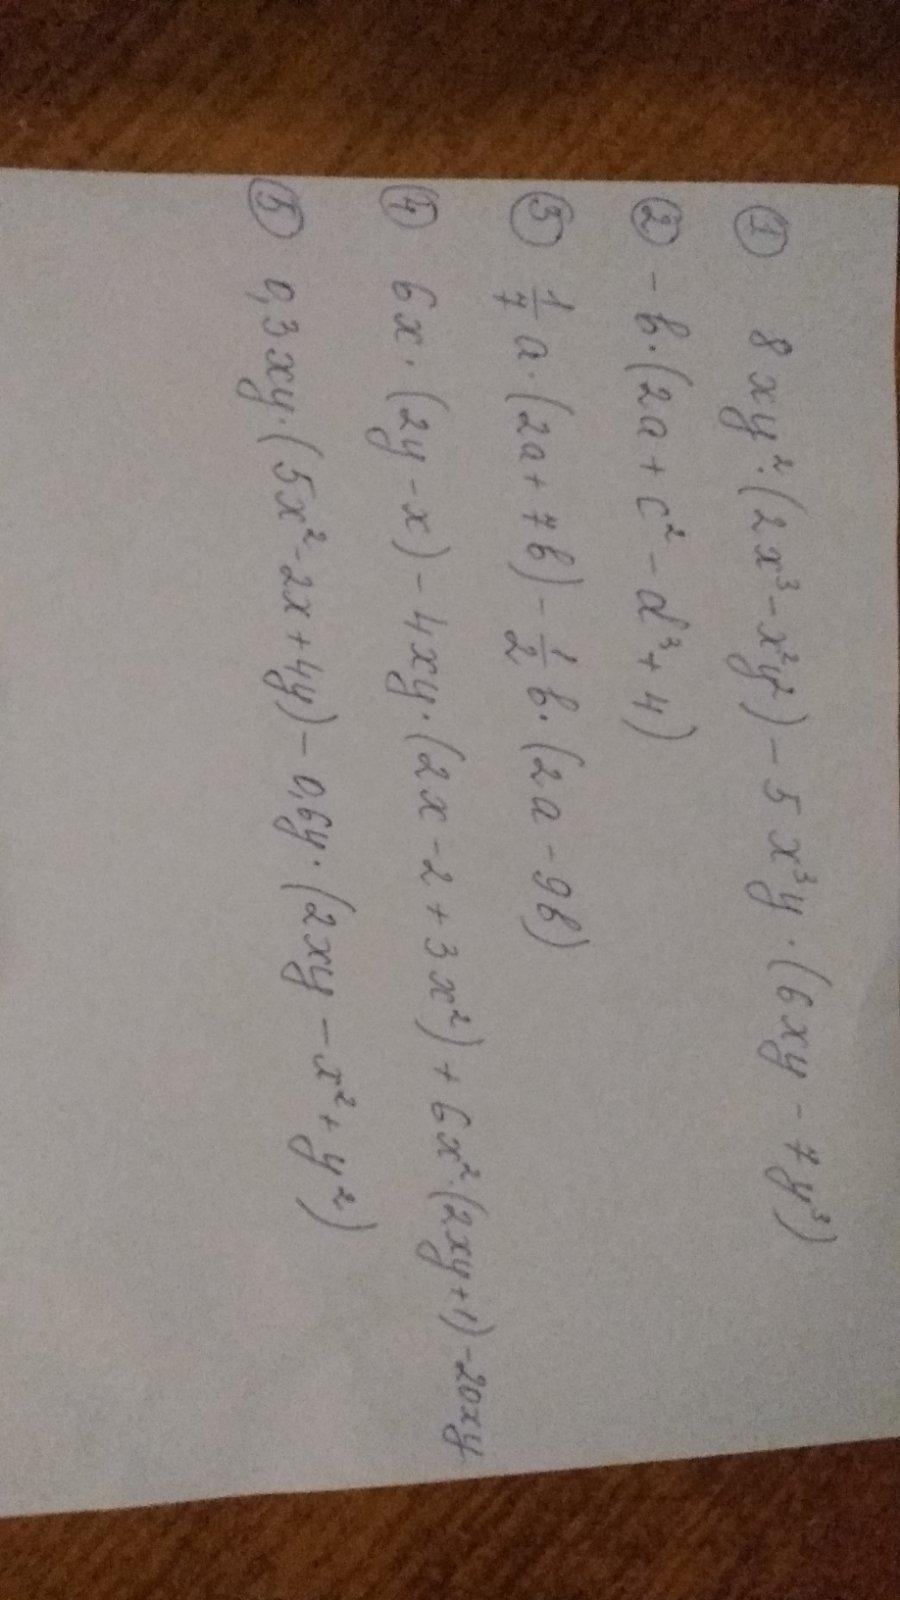 ① 8xy²·(2x³-x²y²)-5x³y·(6xy-7y³)
② -b·(2a+c²-d³+4)
③ 1/7 a·(2a+7b)-1/2 b·(2a-9b)
④ 6x·(2y-x)-4xy·(2x-2+3x²)+6x²·(2xy+1)-20xy
⑤ 0,3xy·(5x²-2x+4y)-0,6y·(2xy-x²+y²)